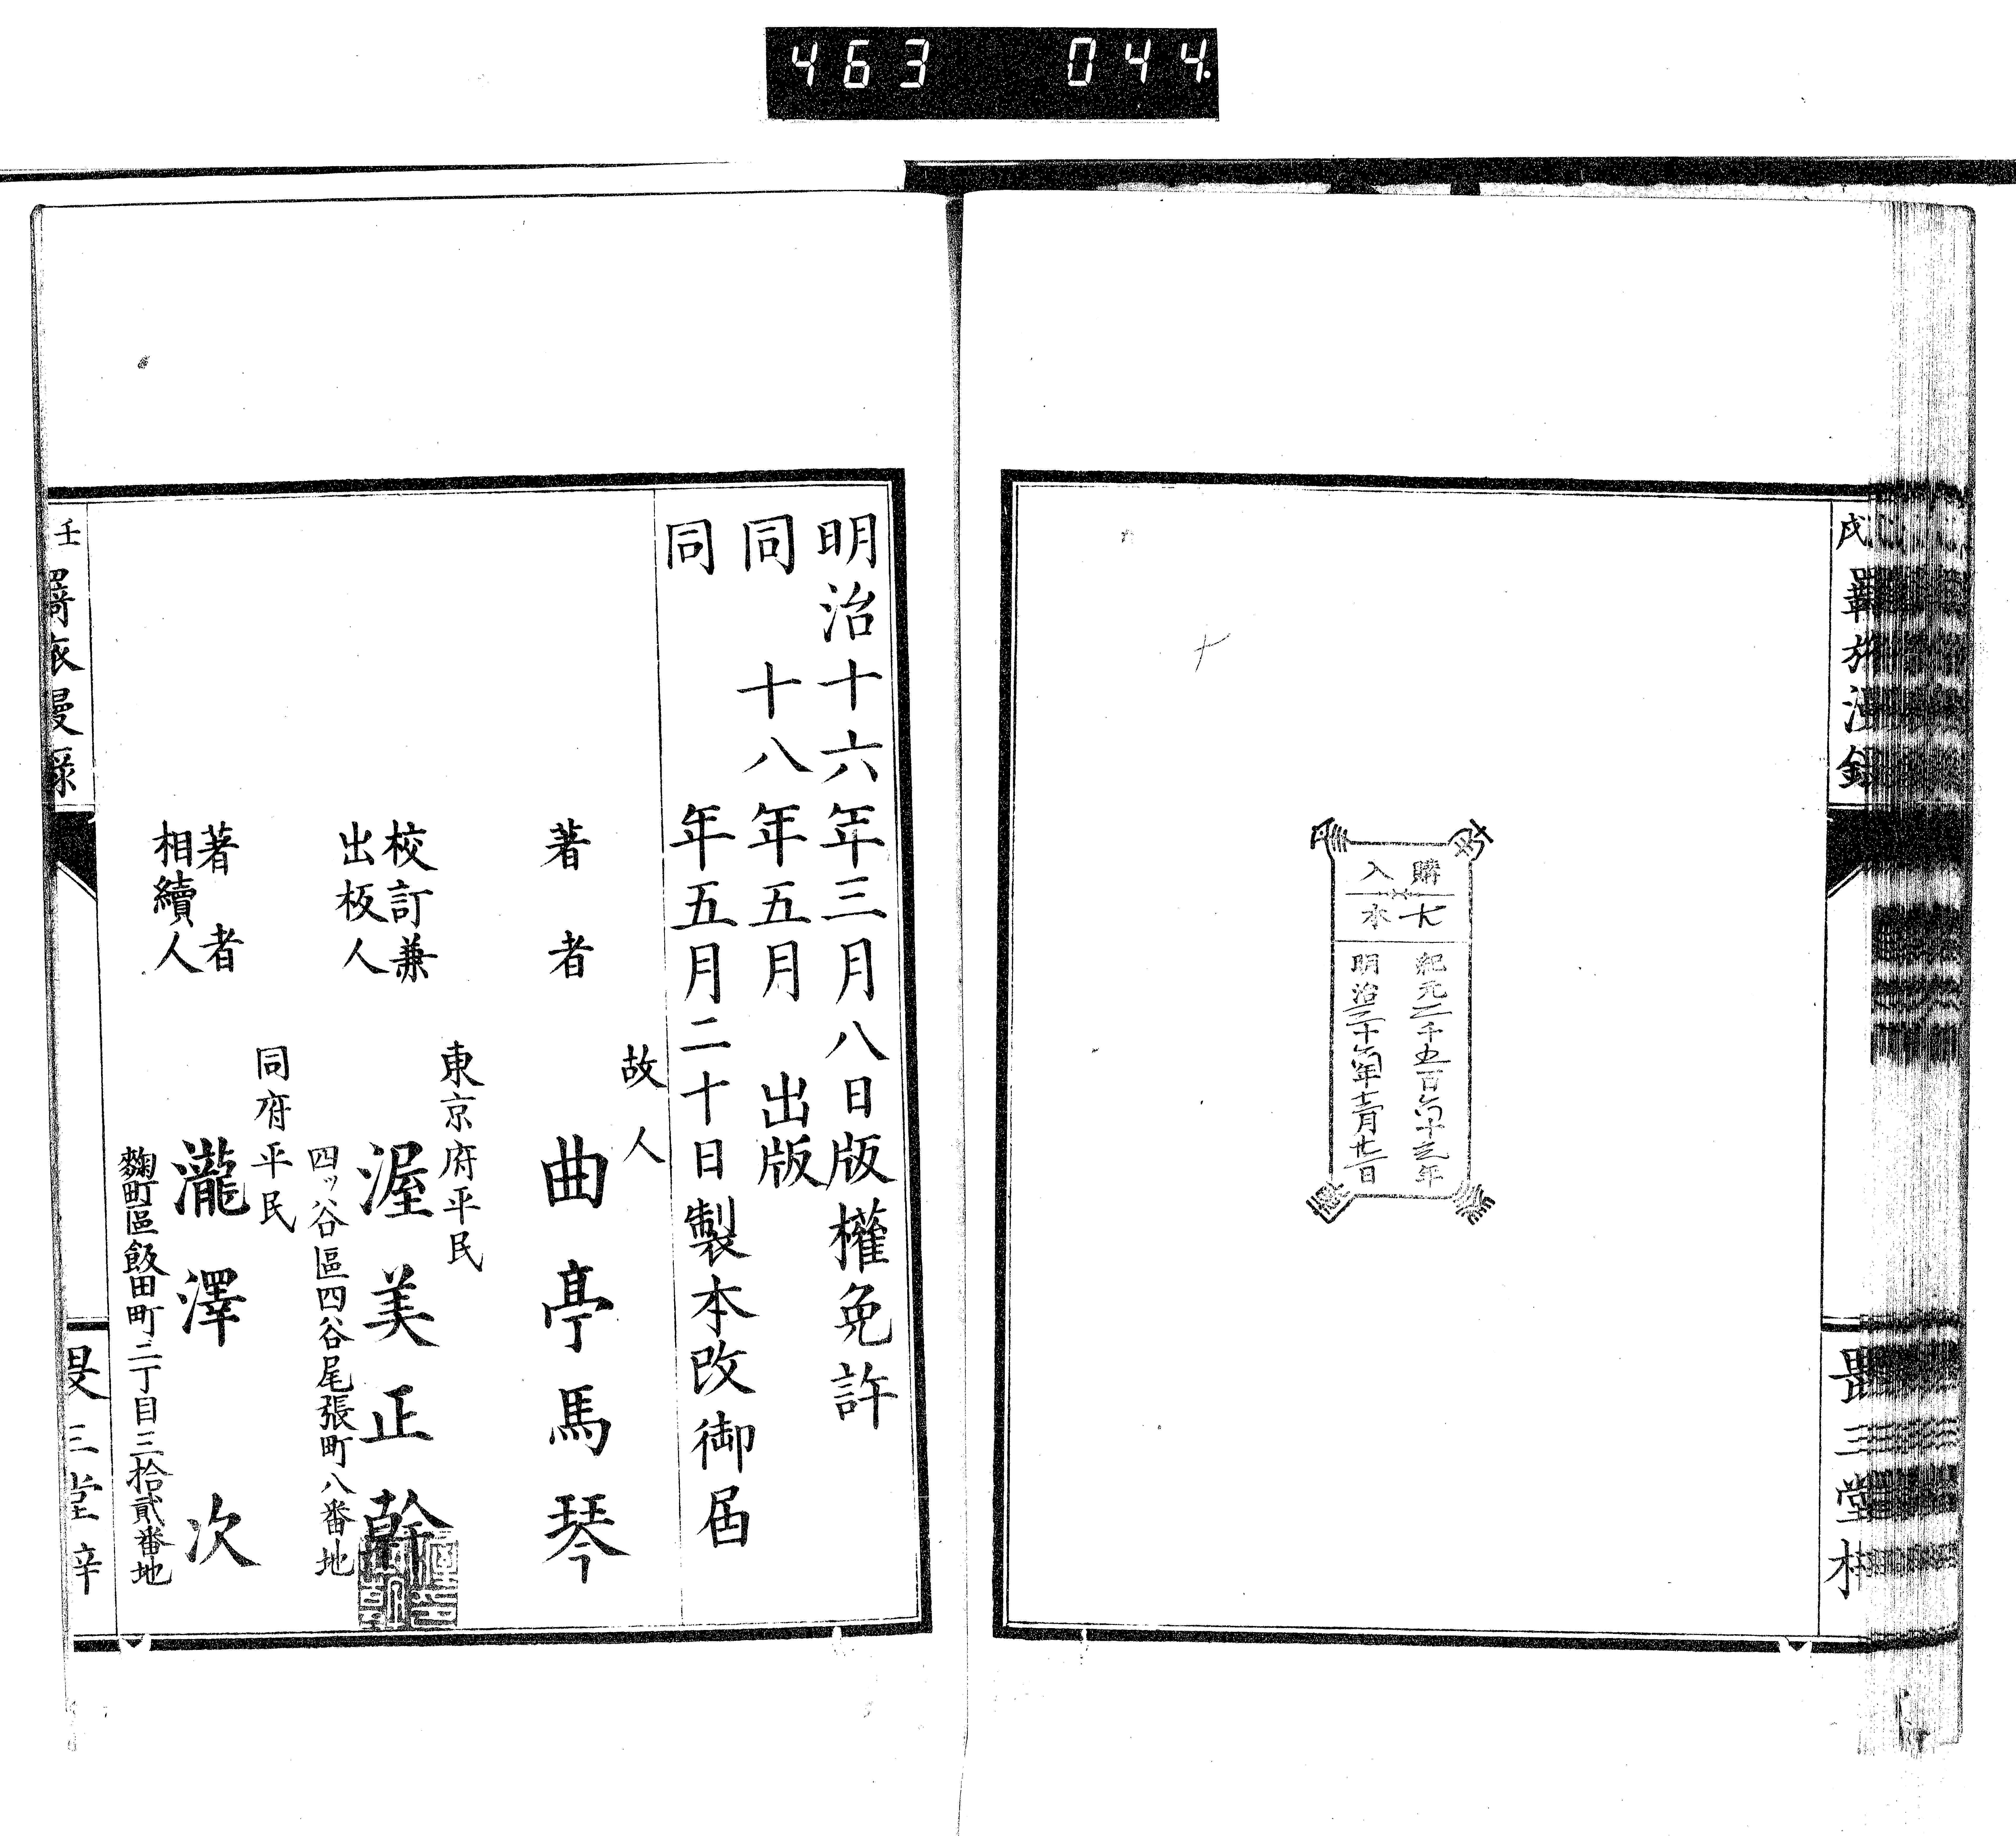 463 044
戌 羇旅漫録
畏三堂
購入
大本
紀元二千五百六十三年
明治三十六年十二月廿二日
明治十六年三月八日版權免許
同 十八年五月 出版
同 年五月二十日製本改御届
故人
著者 曲亭馬琴
東京府平民
校訂兼
出板人 渥美正幹
四ッ谷區四谷尾張町八番地
同府平民
著者
相續人 瀧澤次
麴町區飯田町二丁目三拾貳番地
壬
三堂